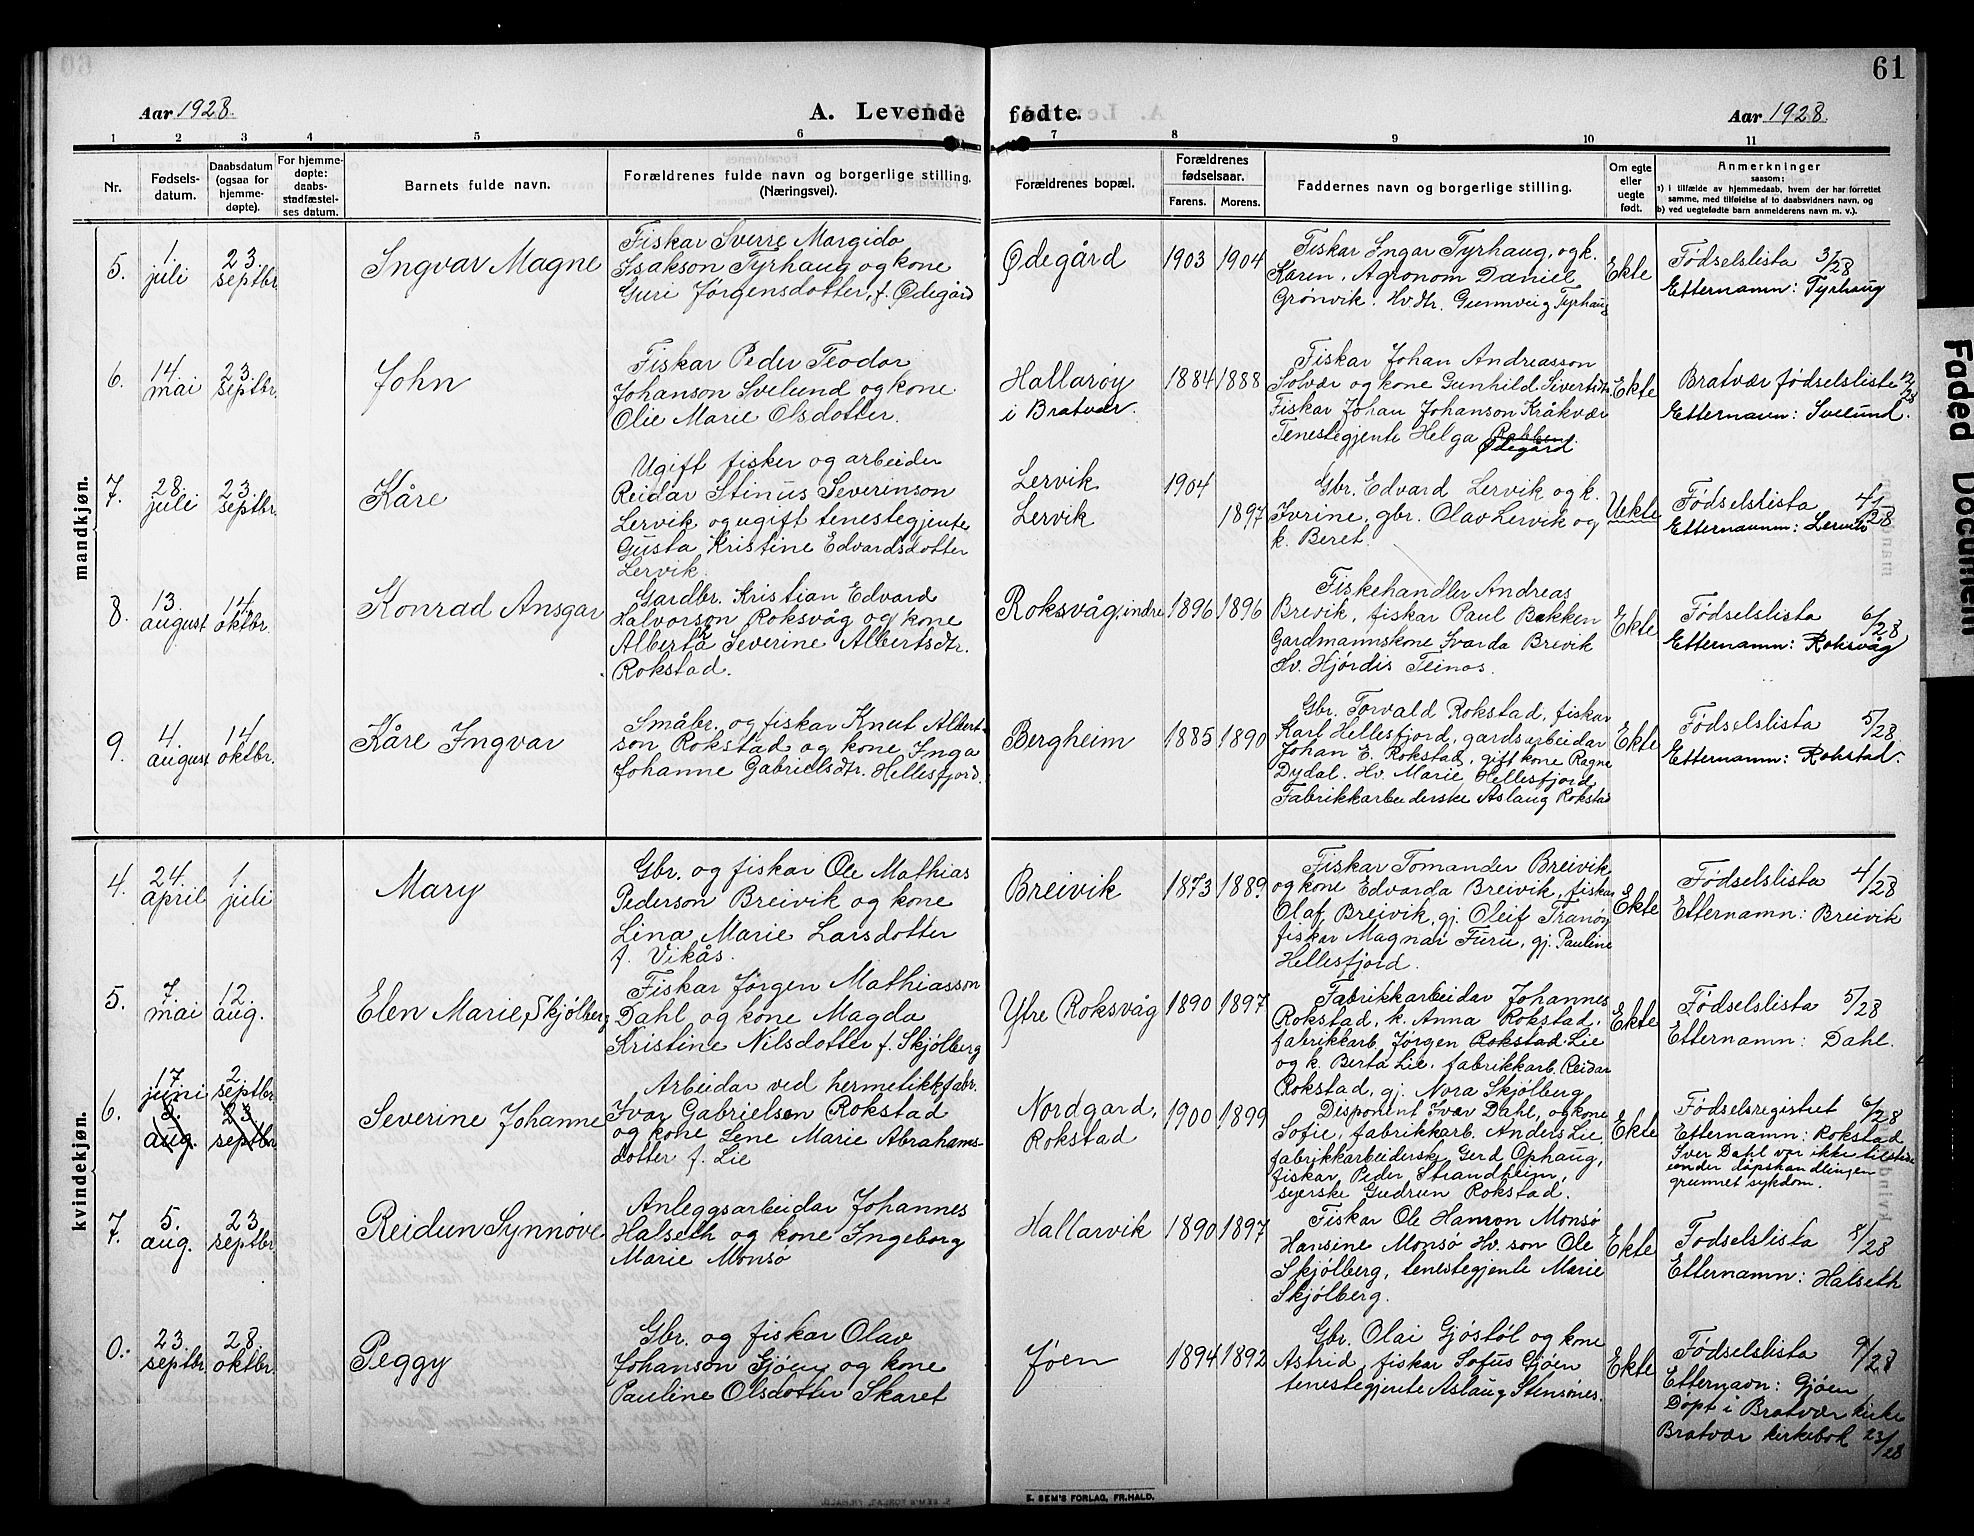 61
Aar 1928.
A. Levende fødte.
Aar 1928.
1 2 3 4 5 6 7 7 8 9 10 11
Nr.
Fødsels-
datum.
Daabsdatum
(ogsaa for
hjemme-
døpte).
For hjemme-
døpte:
daabs-
stadfæstel-
ses datum.
Barnets fulde navn.
Forældrenes fulde navn og borgerlige stilling.
(Næringsvei).
Forældrenes bopæl.
Forældrenes
fødselsaar.
Farens. Morens.
Faddernes navn og borgerlige stilling.
Om egte
eller
uegte
født.
Anmerkninger
saasom:
a) i tilfælde av hjemmedaab, hvem der har forrettet
samme, med tilføielse av to daabsvidners navn, og
b) ved uegtefødte barn anmelderens navn m. v.).
mandkjøn.
5.
1.
juli
23.
septbr.
Ingvar Magne
Fiskar Sverre Margido
Isakson Tyrhaug og kone
Guri Jørgensdotter, f. Ødegård
Ødegård
1903 1904
Fiskar Ingar Tyrhaug, og k.
Karen, Agronom Daniel
Grønvik. Hv.dtr. Gunnveig Tyrhaug
Ekte
Fødselslista 3/28
Etternamn: Tyrhaug
6.
14
mai
23.
septbr.
John
Fiskar Peder Teodor
Johanson Svelund og kone
Olie Marie Olsdotter.
Hallarøy
i Bratvær.
1884 1888
Fiskar Johan Andreasson
Solvær og kone Gunhild Sivertsdtr.
Fiskar Johan Johanson Kråkvær
Tenestegjente Helga
Ødegård
Ekte
Bratvær fødselsliste 12/28
Etternavn: Svelund.
7.
28.
juli
23.
septbr.
Kåre
Ugift fisker og arbeider
Reidar Stinus Severinson
Lervik og ugift tenestegjente
Gusta Kristine Edvardsdotter
Lervik.
Lervik
Lervik
1904
1897
Gbr. Edvard Lervik og k.
Ivrine, gbr. Olav Lervik og
k. Beret.
Uekte
Fødselslista 4/28
Etternavnn: Lervik
8.
13.
august
14.
oktbr.
Konrad Ansgar
Gardbr. Kristian Edvard
Halvorson Roksvåg og kone
Alberta Severine Albertsdtr.
Rokstad.
Roksvåg, indre
1896 1896
Fiskehandler Andreas
Brevik, fiskar Paul Bakken
Gardmannskone Svarda Brevik
Hv. Hjørdis Teinos.
Ekte
Fødselslista 6/28
Etternamn: Roksvåg
9.
4.
august
14
oktbr.
Kåre Ingvar
Småbr. og fiskar Knut Albert-
son Rokstad og kone Inga
Johanne Gabrielsdtr. Hellesfjord.
Bergheim
1885 1890
Gbr. Torvald Rokstad, fiskar
Karl Hellesfjord, gardsarbeidar
Johan E. Rokstad, gift kone Ragne
Dydal. Hv. Marie Hellesfjord
Fabrikkarbeiderske Aslaug Rokstad
Ekte
Fødselslista 5/28
Etternamn: Rokstad.
kvindekjøn.
4.
24.
april
1.
juli
Mary
Gbr. og fiskar Ole Mathias
Pederson Breivik og kone
Lina Marie Larsdotter
f. Vikås.
Breivik
1873 1889
Fiskar Tomander Breivik
og kone Edvarda Breivik, fiskar
Olaf Breivik, gj. Oleif Tranøy
fiskar Magnar Furu, gj. Pauline
Hellesfjord.
Ekte
Fødselslista 4/28
Etternamn: Breivik
5.
7.
mai
12.
aug.
Elen Marie, Skjølberg
Fiskar Jørgen Mathiasson
Dahl og kone Magda
Kristine Nilsdotter f. Skjølberg
Ytre Roksvåg
1890 1897
Fabrikkarbeidar Johannes
Rokstad, k. Anna Rokstad,
fabrikkarb. Jørgen Rokstad Lie
og k. Berta Lie, fabrikkarb. Reidar
Rokstad, gj. Nora Skjølberg
Ekte
Fødselslista 5/28
Etternamn: Dahl.
6.
17
juni
5.
aug.
2.
septbr.
23
septbr
Severine Johanne
Arbeidar ved hermetikkfabr.
Ivar Gabrielsen Rokstad
og kone Lene Marie Abrahams-
dotter f. Lie
Nordgard,
Rokstad
1900 1899
Disponent Ivar Dahl, og kone
Sofie, fabrikkarb. Anders Lie,
fabrikkarbeiderske Gerd Ophaug,
fiskar Peder Strandheim,
syerske Gudrun Rokstad.
Ekte
Fødselsregistret 6/28
Etternamn: Rokstad
Iver Dahl var ikke tilstede
under dåpshandlingen
grunnet sykdom.
7.
5.
aug.
23.
septbr
Reidun Synnøve
Anleggsarbeidar Johannes
Halseth og kone Ingeborg
Marie Monsø
Hallarvik
1890 1897
Fiskar Ole Hanson Monsø
Hansine Monsø Hv. son Ole
Skjølberg, tenestegjente Marie
Skjølberg.
Ekte
Fødselslista 8/28
Etternamn: Halseth
0.
23.
septbr.
28.
oktbr.
Peggy
Gbr. og fiskar Olav
Johanson Gjøen og kone
Pauline Olsdotter Skaret
Jøen
1894 1892
Gbr. Olai Gjøstøl og kone
Astrid, fiskar Sofus Gjøen
tenestegjente Aslaug Stensønes.
Ekte
Fødselslista 9/28
Etternavn: Gjøen
Døpt i Bratvær kirke
Bratvær kirkebok 23/28
E. SEM'S FORLAG, FR.HALD.
Faded Document